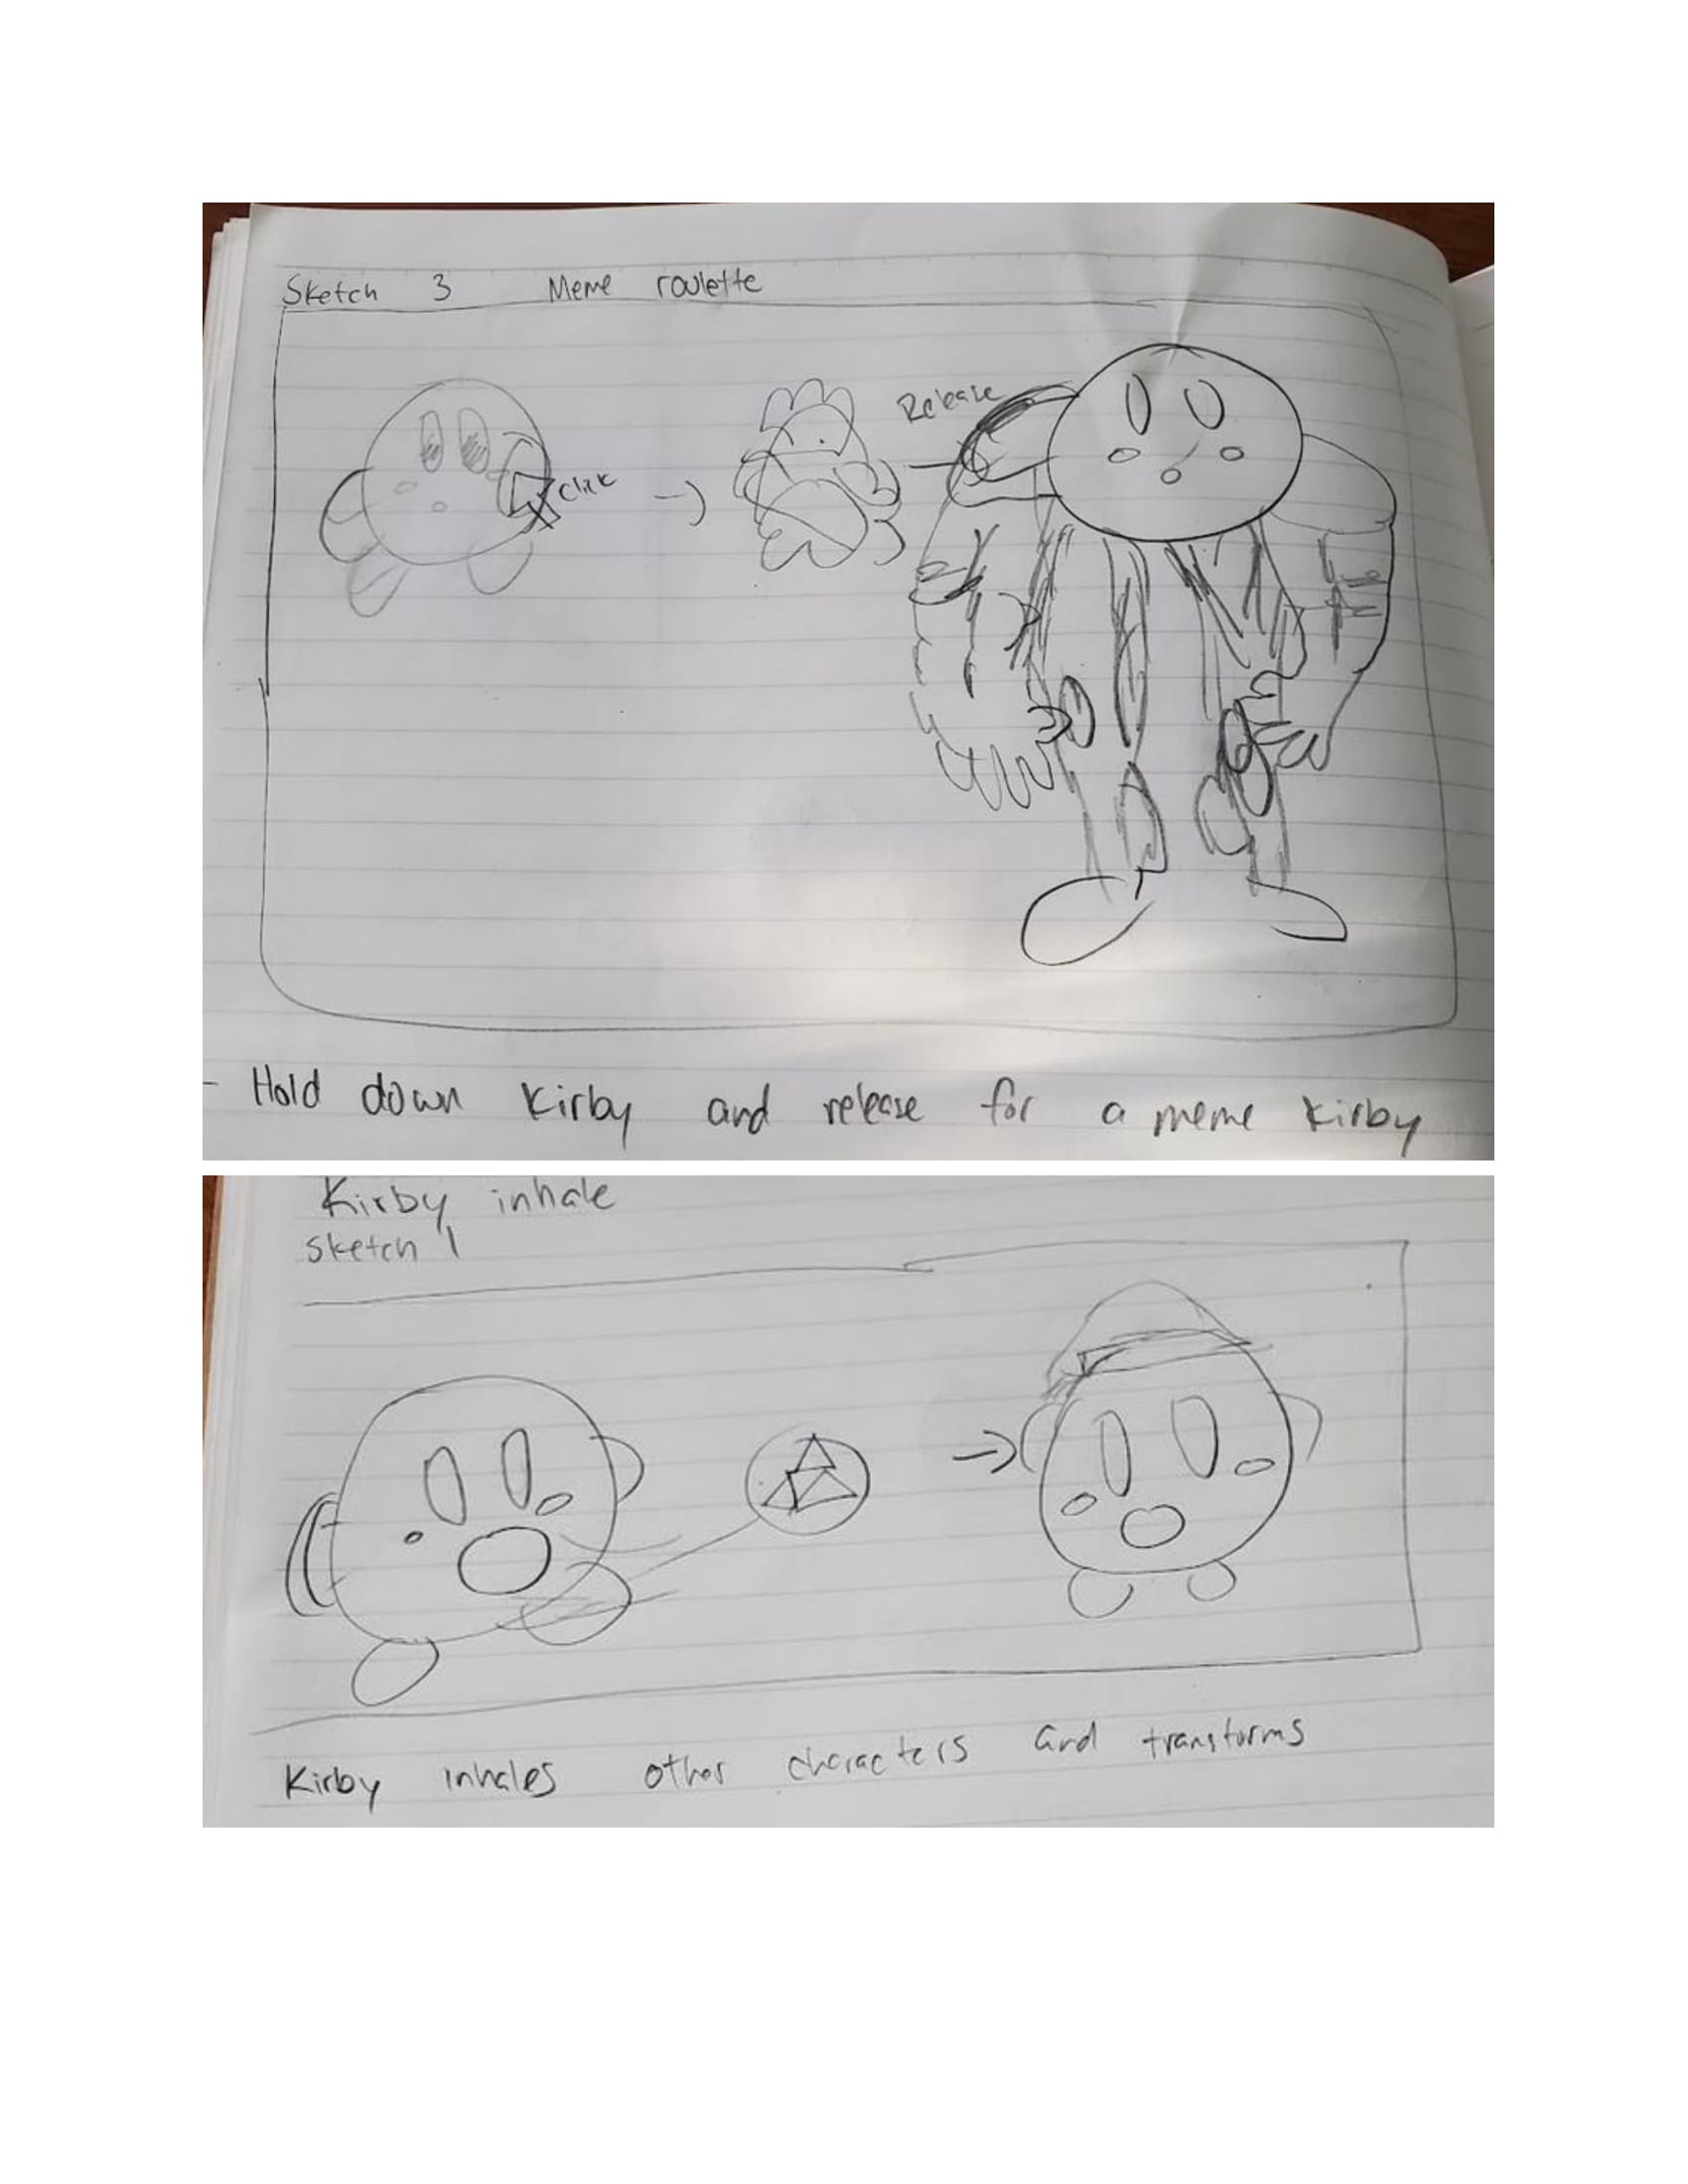 Sketch 3 Meme roulette
Click
Release
- Hold down Kirby and release for a meme Kirby
Kirby inhale
Sketch 1
Kirby inhales other characters and transforms